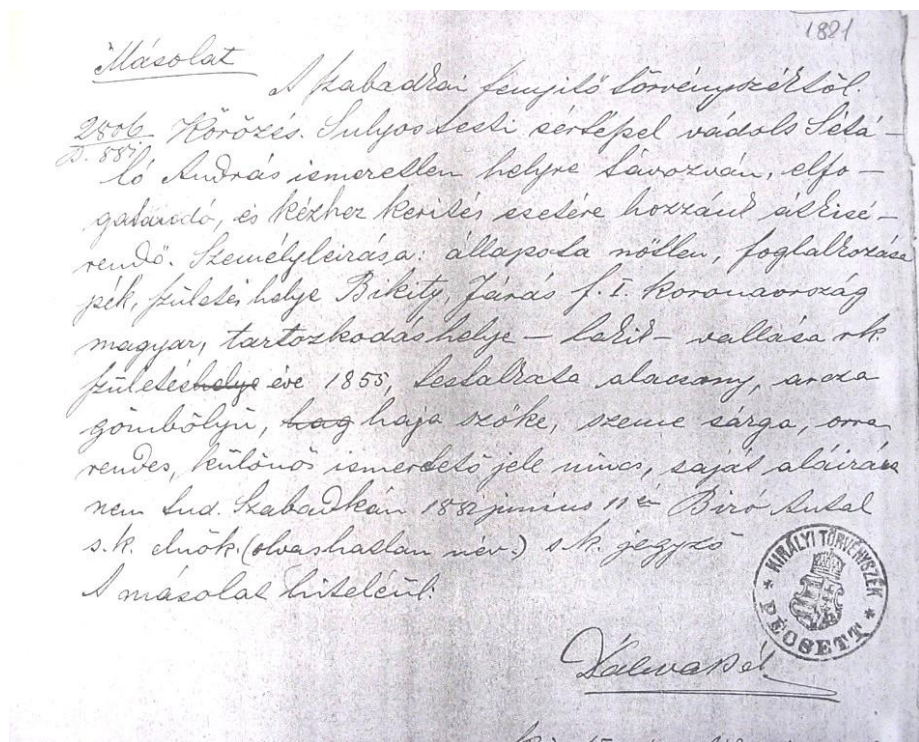 1821
Másolat
A szabadkai fenyitő törvényszéktől.
2806 Körözés. Sulyos testi sértéssel vádols Sétá-
ló András ismeretlen helyre távozván, elfo-
gatandó, és kézhez kerités esetére hozzánk átkisé-
rendő. Személyleirása: állapota nőtlen, foglalkozása
pék, születési helye Bikity, Járás f. I. koronaország
magyar, tartozkodás helye – lakik – vallása rk.
születéshelye éve 1855, testalkata alacsony, arcza
gömbölyű, hag haja szőke, szeme sárga, orra
rendes, különös ismertető jele nincs, saját aláirása
nem tud. Szabadkán 1882 junius 11 én Biró Antal
s.k. elnök. (olvashatlan név.) s.k. jegyző
A másolat hiteléül:
KIRÁLYI TÖRVÉNYSZÉK
PÉCSETT